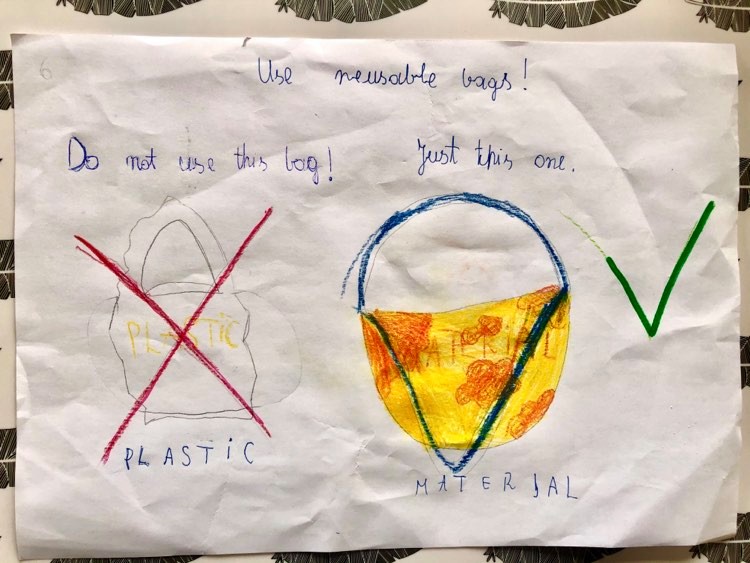 6
Use reusable bags!
Do not use this bag! Just this one.
PLASTIC
MATERIAL
PLASTIC
MATERIAL